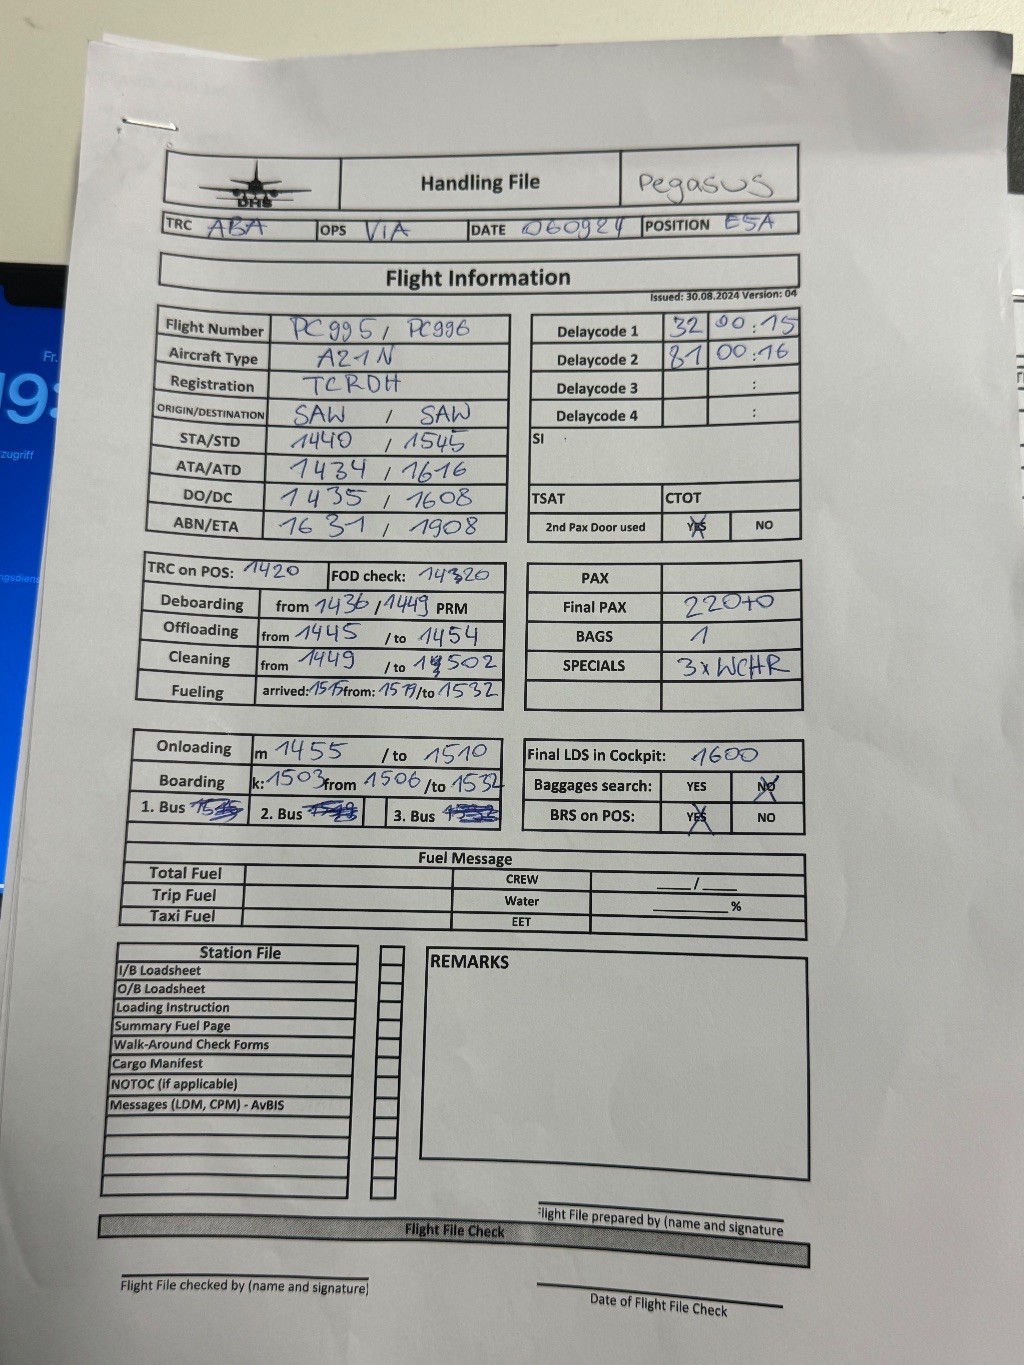 DHS Handling File Pegasus
TRC ABA OPS VIA DATE 060924 POSITION E5A
Flight Information
Issued: 30.08.2024 Version: 04
Flight Number PC995 / PC996 Delaycode 1 32 00:15
Aircraft Type A21N Delaycode 2 81 00:16
Registration TCRDH Delaycode 3 :
ORIGIN/DESTINATION SAW / SAW Delaycode 4 :
STA/STD 1440 / 1545 SI
ATA/ATD 1434 / 1616
DO/DC 1435 / 1608 TSAT CTOT
ABN/ETA 1631 / 1908 2nd Pax Door used YES NO
TRC on POS: 1420 FOD check: 1420 PAX
Deboarding from 1436 / 1449 PRM Final PAX 220+0
Offloading from 1445 /to 1454 BAGS 1
Cleaning from 1449 /to 1502 SPECIALS 3xWCHR
Fueling arrived: 1515 from: 1519 /to 1532
Onloading m 1455 /to 1510 Final LDS in Cockpit: 1600
Boarding k: 1503 from 1506 /to 1532 Baggages search: YES NO
1. Bus 2. Bus 3. Bus BRS on POS: YES NO
Fuel Message
Total Fuel CREW ___/___
Trip Fuel Water ______%
Taxi Fuel EET
Station File REMARKS
I/B Loadsheet
O/B Loadsheet
Loading Instruction
Summary Fuel Page
Walk-Around Check Forms
Cargo Manifest
NOTOC (if applicable)
Messages (LDM, CPM) - AvBIS
Flight File prepared by (name and signature
Flight File Check
Flight File checked by (name and signature)
Date of Flight File Check
Fr.
19:
zugriff
ngsdiens